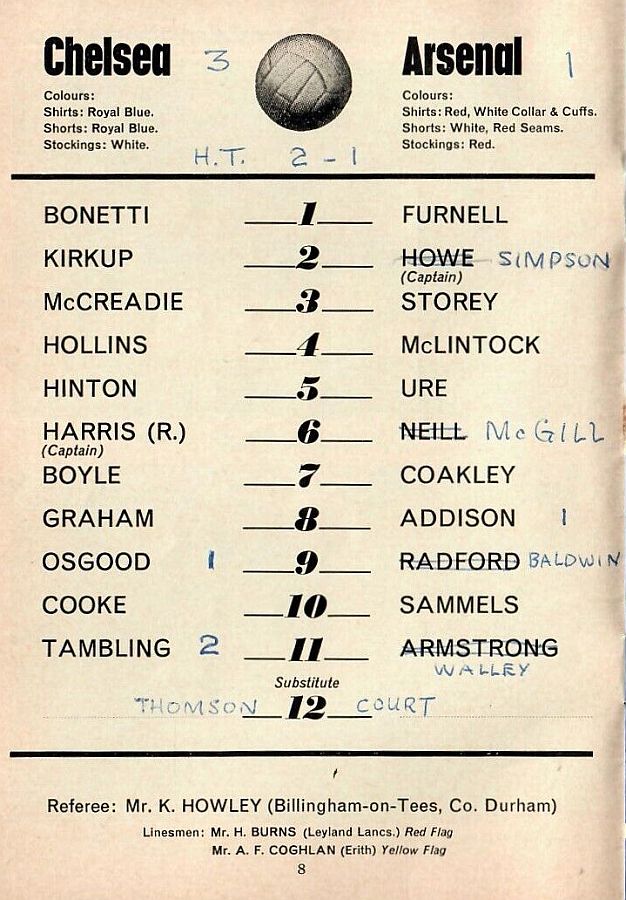 Chelsea 3 Arsenal 1
Colours: Colours:
Shirts: Royal Blue. Shirts: Red, White Collar & Cuffs.
Shorts: Royal Blue. Shorts: White, Red Seams.
Stockings: White. Stockings: Red.
H.T. 2 - 1
BONETTI 1 FURNELL
KIRKUP 2 HOWE SIMPSON
(Captain)
McCREADIE 3 STOREY
HOLLINS 4 McLINTOCK
HINTON 5 URE
HARRIS (R.) 6 NEILL McGILL
(Captain)
BOYLE 7 COAKLEY
GRAHAM 8 ADDISON 1
OSGOOD 1 9 RADFORD BALDWIN
COOKE 10 SAMMELS
TAMBLING 2 11 ARMSTRONG
WALLEY
Substitute
THOMSON 12 COURT
Referee: Mr. K. HOWLEY (Billingham-on-Tees, Co. Durham)
Linesmen: Mr. H. BURNS (Leyland Lancs.) Red Flag
Mr. A. F. COGHLAN (Erith) Yellow Flag
8